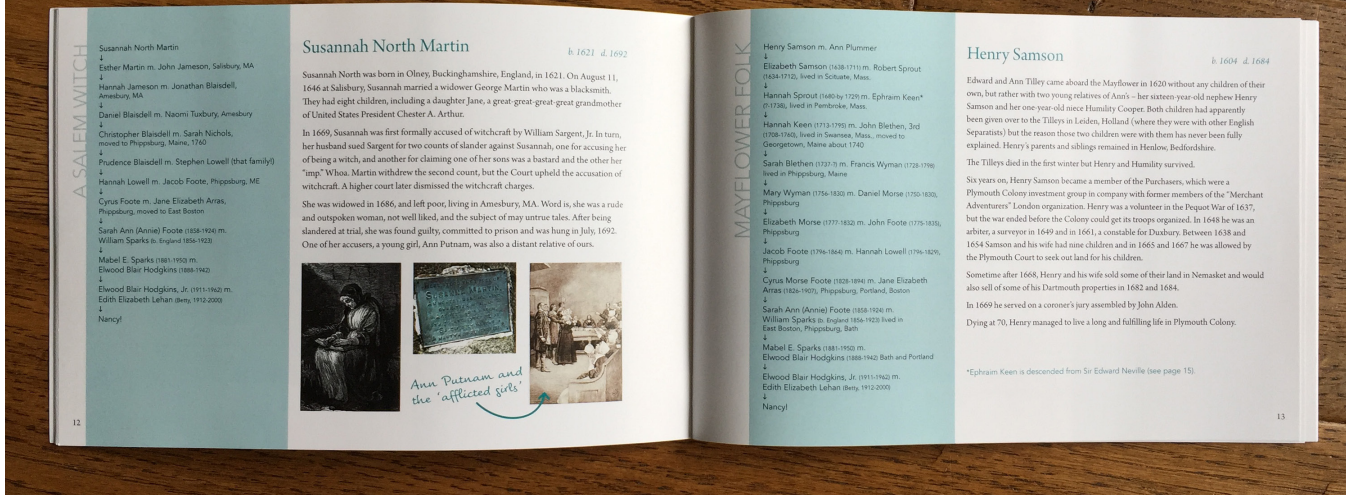 A SALEM WITCH
Susannah North Martin
↓
Esther Martin m. John Jameson, Salisbury, MA
↓
Hannah Jameson m. Jonathan Blaisdell,
Amesbury, MA
↓
Daniel Blaisdell m. Naomi Tuxbury, Amesbury
↓
Christopher Blaisdell m. Sarah Nichols,
moved to Phippsburg, Maine, 1760
↓
Prudence Blaisdell m. Stephen Lowell (that family!)
↓
Hannah Lowell m. Jacob Foote, Phippsburg, ME
↓
Cyrus Foote m. Jane Elizabeth Arras,
Phippsburg, moved to East Boston
↓
Sarah Ann (Annie) Foote (1858-1924) m.
William Sparks (b. England 1856-1923)
↓
Mabel E. Sparks (1881-1950) m.
Elwood Blair Hodgkins (1888-1942)
↓
Elwood Blair Hodgkins, Jr. (1911-1962) m.
Edith Elizabeth Lehan (Betty, 1912-2000)
↓
Nancy!
12
Susannah North Martin
b. 1621 d. 1692
Susannah North was born in Olney, Buckinghamshire, England, in 1621. On August 11,
1646 at Salisbury, Susannah married a widower George Martin who was a blacksmith.
They had eight children, including a daughter Jane, a great-great-great-great grandmother
of United States President Chester A. Arthur.
In 1669, Susannah was first formally accused of witchcraft by William Sargent, Jr. In turn,
her husband sued Sargent for two counts of slander against Susannah, one for accusing her
of being a witch, and another for claiming one of her sons was a bastard and the other her
"imp." Whoa. Martin withdrew the second count, but the Court upheld the accusation of
witchcraft. A higher court later dismissed the witchcraft charges.
She was widowed in 1686, and left poor, living in Amesbury, MA. Word is, she was a rude
and outspoken woman, not well liked, and the subject of may untrue tales. After being
slandered at trial, she was found guilty, committed to prison and was hung in July, 1692.
One of her accusers, a young girl, Ann Putnam, was also a distant relative of ours.
SUSANNA MARTIN
Ann Putnam and
the 'afflicted girls'
MAYFLOWER FOLK
Henry Samson m. Ann Plummer
↓
Elizabeth Samson (1638-1711) m. Robert Sprout
(1634-1712), lived in Scituate, Mass.
↓
Hannah Sprout (1680-by 1729) m. Ephraim Keen*
(?-1738), lived in Pembroke, Mass.
↓
Hannah Keen (1713-1795) m. John Blethen, 3rd
(1708-1760), lived in Swansea, Mass., moved to
Georgetown, Maine about 1740
↓
Sarah Blethen (1737-?) m. Francis Wyman (1728-1798)
lived in Phippsburg, Maine
↓
Mary Wyman (1756-1830) m. Daniel Morse (1750-1830),
Phippsburg
↓
Elizabeth Morse (1777-1832) m. John Foote (1775-1835),
Phippsburg
↓
Jacob Foote (1796-1864) m. Hannah Lowell (1796-1829),
Phippsburg
↓
Cyrus Morse Foote (1828-1894) m. Jane Elizabeth
Arras (1826-1907), Phippsburg, Portland, Boston
↓
Sarah Ann (Annie) Foote (1858-1924) m.
William Sparks (b. England 1856-1923) lived in
East Boston, Phippsburg, Bath
↓
Mabel E. Sparks (1881-1950) m.
Elwood Blair Hodgkins (1888-1942) Bath and Portland
↓
Elwood Blair Hodgkins, Jr. (1911-1962) m.
Edith Elizabeth Lehan (Betty, 1912-2000)
↓
Nancy!
Henry Samson
b. 1604 d. 1684
Edward and Ann Tilley came aboard the Mayflower in 1620 without any children of their
own, but rather with two young relatives of Ann's – her sixteen-year-old nephew Henry
Samson and her one-year-old niece Humility Cooper. Both children had apparently
been given over to the Tilleys in Leiden, Holland (where they were with other English
Separatists) but the reason those two children were with them has never been fully
explained. Henry's parents and siblings remained in Henlow, Bedfordshire.
The Tilleys died in the first winter but Henry and Humility survived.
Six years on, Henry Samson became a member of the Purchasers, which were a
Plymouth Colony investment group in company with former members of the "Merchant
Adventurers" London organization. Henry was a volunteer in the Pequot War of 1637,
but the war ended before the Colony could get its troops organized. In 1648 he was an
arbiter, a surveyor in 1649 and in 1661, a constable for Duxbury. Between 1638 and
1654 Samson and his wife had nine children and in 1665 and 1667 he was allowed by
the Plymouth Court to seek out land for his children.
Sometime after 1668, Henry and his wife sold some of their land in Nemasket and would
also sell of some of his Dartmouth properties in 1682 and 1684.
In 1669 he served on a coroner's jury assembled by John Alden.
Dying at 70, Henry managed to live a long and fulfilling life in Plymouth Colony.
*Ephraim Keen is descended from Sir Edward Neville (see page 15).
13